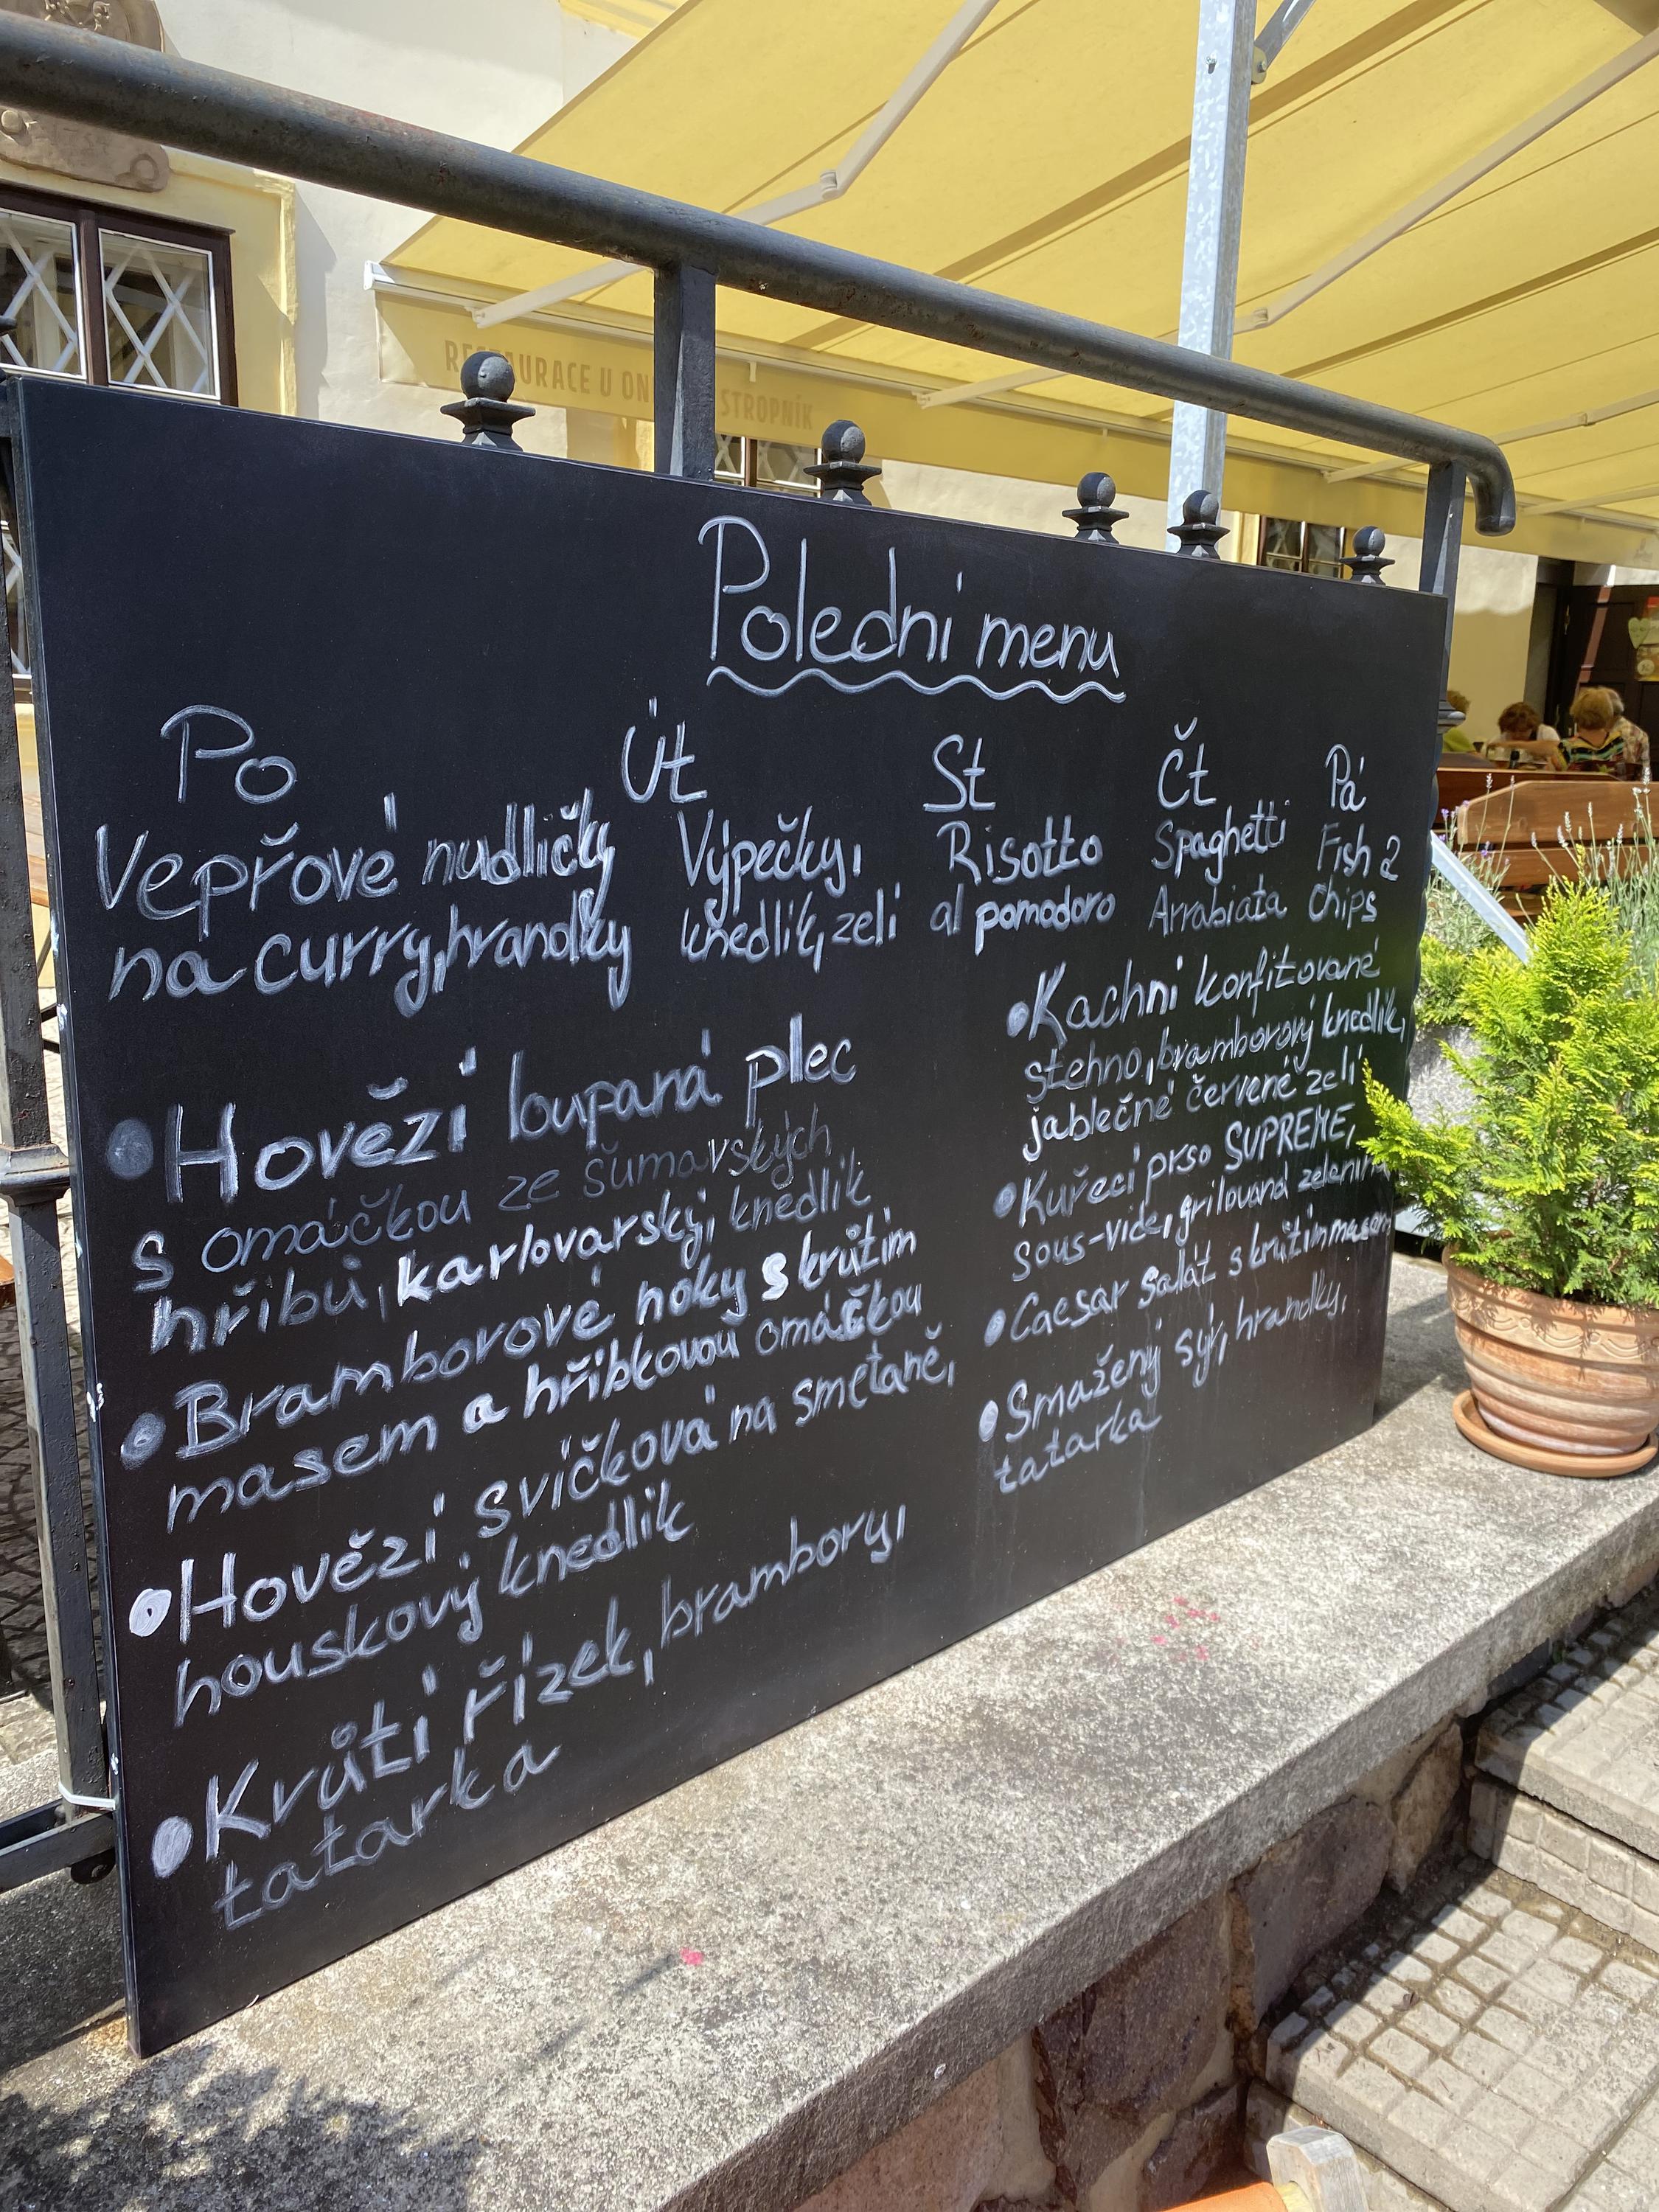 RESTAURACE U ON STROPNÍK
Polední menu
Po Út St Čt Pá
Vepřové nudličky
na curry, hranolky
Výpečky,
knedlík, zelí
Risotto
al pomodoro
Spaghetti
Arrabiata
Fish &
Chips
• Hovězí loupaná plec
s omáčkou ze šumavských
hřibů, karlovarský knedlík
• Bramborové noky s krůtím
masem a hříbkovou omáčkou
• Hovězí svíčková na smetaně,
houskový knedlík
• Krůtí řízek, brambory,
tatarka
• Kachní konfitované
stehno, bramborový knedlík,
jablečné červené zelí
• Kuřecí prso SUPREME,
sous-vide, grilovaná zelenina
• Caesar salát s krůtím masem
• Smažený sýr, hranolky,
tatarka